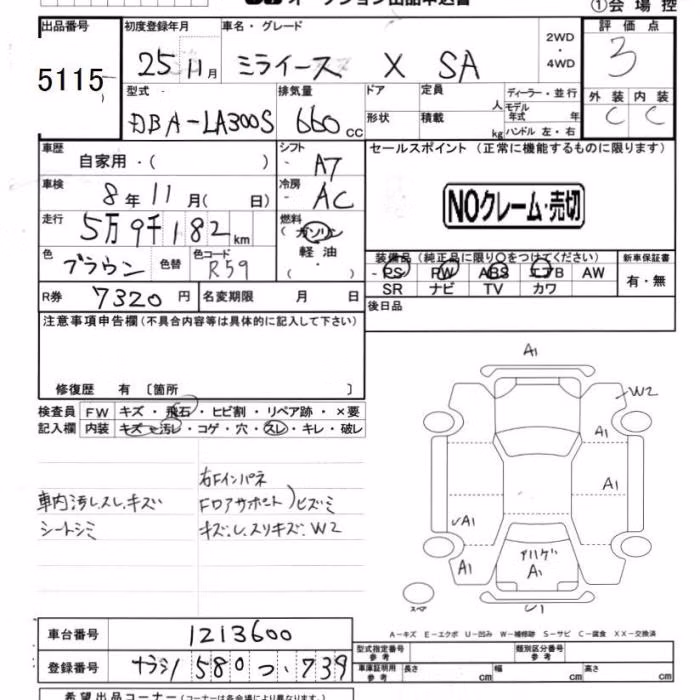 オークション出品申込書
①会場控
出品番号 初度登録年月 車名・グレード 評価点
5115 25年11月 ミライース X SA 2WD・4WD 3
型式 排気量 ドア 定員 人 ディーラー・並行 外装 内装
DBA-LA300S 660cc 形状 積載 kg モデル年式 年 ハンドル 左・右 C C
車歴 自家用・( ) シフト - A7 セールスポイント(正常に機能するものに限ります)
車検 8年11月( 日) 冷房 - AC NOクレーム・売切
走行 5万9千182km 燃料 (ガソリン 軽油・ )
色 ブラウン 色替 色コード R59
装備品(純正品に限り○をつけてください) 新車保証書
PS PW ABS エアB AW 有・無
SR ナビ TV カワ
R券 7320円 名変期限 月 日 後日品
注意事項申告欄(不具合内容等は具体的に記入して下さい)
修復歴 有 〔箇所 〕
検査員 FW キズ・飛石・ヒビ割・リペア跡・×要
記入欄 内装 キズ・汚レ・コゲ・穴・スレ・キレ・破レ
車内汚レスレ.キズ
シートシミ
右Fインパネ
Fロアサポート)ヒズミ
キズし.スリキズ.W2
A1
W2
A1
A1
A1
A1
アリハゲ
A1
U1
スペア
A-キズ E-エクボ U-凹み W-補修跡 S-サビ C-腐食 XX-交換済
車台番号 1213600
登録番号 ナラシノ 580 つ・739
型式指定番号 参考 類別区分番号 参考
車庫証明用 参考 長さ cm 幅 cm 高さ cm
希望出品コーナー(コーナーは各会場により異なります)